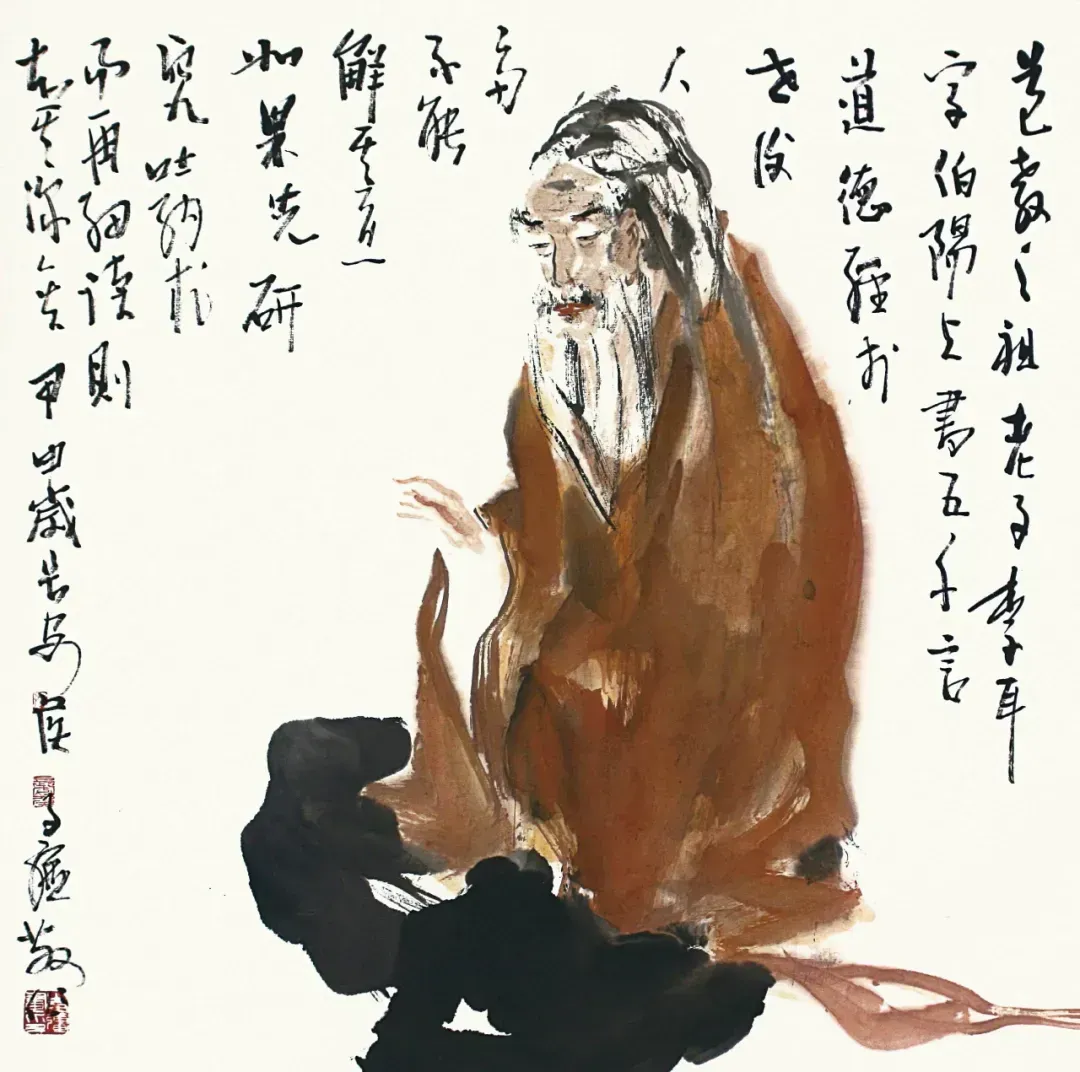 道教之祖老子李耳
字伯陽上書五千言
道德經於
世後
人
多
不能
解其意
如果先研
究吐納術
而再細讀則
知其深矣甲申歲長安